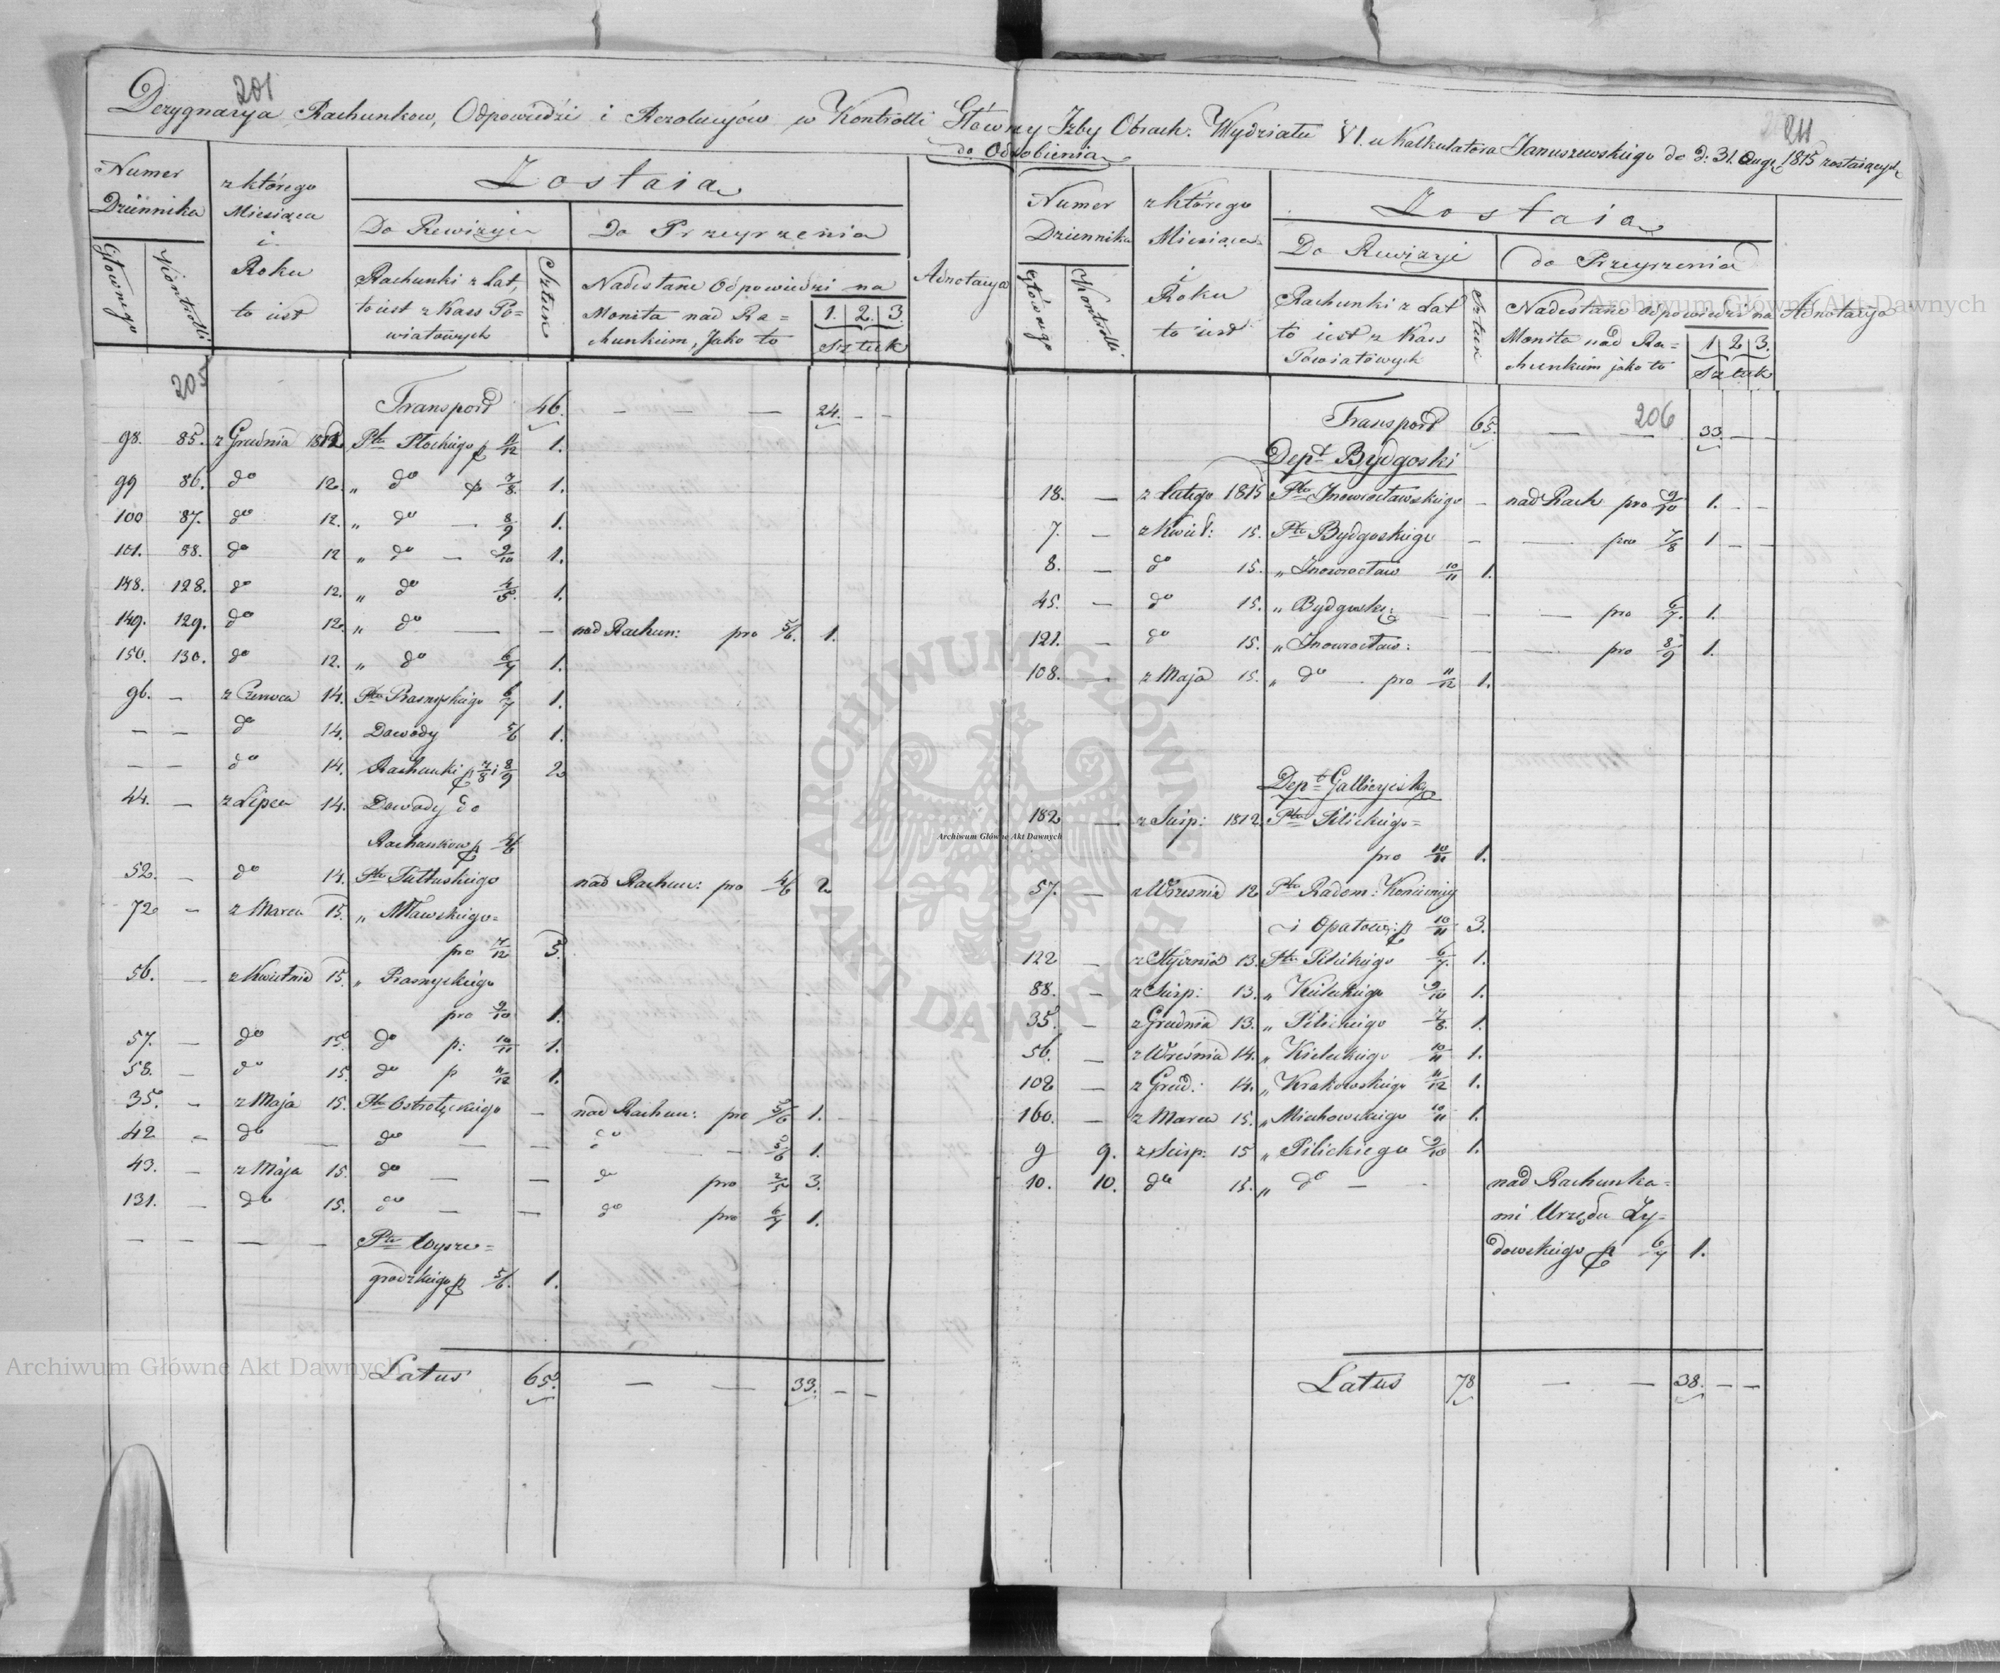 201
211
Dezygnacya Rachunkow, Odpowiedzi i Rezolucyów w Kontrolli Główney Izby Obrach. Wydziału VI. u Kalkulatora Januszewskiego do d: 31. Aug. 1815 zostaiących
do Odrobienia
Numer Dziennika
Głownego
Kontrolli
z którego Miesiąca i Roku to iest
Zostaia
Do Rewizyi
Do Przeyrzenia
Rachunki z Lat, to iest z Kass Powiatowych
Sztuk
Nadesłane Odpowiedzi na Monita nad Rachunkiem, Jako to
1. 2. 3.
Sztuk
Adnotacya
205
Transport 46. — — — 24. — —
98. 85. z Grudnia 1812 Ptu Płockiego p 11/12 1.
99 86. do 12. „ do p 7/8. 1.
100 87. do 12. „ do — 8/9 1.
101. 88. do 12 „ do — 9/10 1.
148. 128. do 12. „ do 4/5. 1.
149. 129. do 12. „ do — — nad Rachun: pro 5/6. 1.
150. 130. do 12. „ do 6/7 1.
96. — z Czerwca 14. Ptu Prasnyskiego 6/7 1.
— — do 14. Dowody 5/6 1.
— — do 14. Rachunki p 7/8 i 8/9 2
44. — z Lipca 14. Dowody do
Rachunkow p 5/6
52. — do 14. Ptu Pułtuskiego nad Rachun: pro 5/6 2
72 — z Marca 15. „ Mławskiego
pro 7/12 5.
56. — z Kwietnia 15. „ Prasnyskiego
pro 9/10 1.
57. — do 15. do p: 10/11 1.
58. — do 15. do p 11/12 1.
35. — z Maja 15. Ptu Ostrołęckiego — nad Rachun: pro 5/6 1.
42 — do — do — — do — — 5/6 1.
43. — z Maja 15. do — — do pro 2/5 3.
131. — do 15. do — — do pro 6/7 1.
— — — — Ptu Wyszo=
grodzkiego p 5/6. 1.
Latus 65. — — 33. — —
Numer Dziennika
Główngo
Kontrolli
z którego Miesiąca i Roku to iest
Zostaia
Do Rewizyi
do Przeyrzenia
Rachunki z Lat to iest z Kass Powiatowych
Sztuk
Nadesłane odpowiedzi na Monita nad Rachunkiem jako to
1 2 3.
Sztuk
Adnotacya
206
Transport 65. — — 33. — —
Dept Bydgoski
18. — z Lutego 1815 Ptu Inowrocławskiego — nad Rach pro 9/10 1. — —
7. — z Kwiet: 15. Ptu Bydgoskiego — — pro 7/8 1 — —
8. — do 15. „ Inowrocław 10/11 1.
45. — do 15. „ Bydgoski: — — pro 6/7. 1.
121. — do 15. „ Inowrocław: — — pro 8/9 1.
108. — z Maja 15. „ do — pro 11/12 1.
Dept Gallicyiski
182 — z Sierp: 1812. Ptu Pilickiego=
pro 10/11 1.
57. — z Wrzesnia 12 Ptu Radom: Konieniey
i Opatow: p 10/11. 3.
122 — z Stycznia 13. Ptu Pilickigo 6/7. 1.
88. — z Sierp: 13. „ Kieleckiego 9/10 1.
35. — z Grudnia 13. „ Pilickiego 7/8. 1.
56. — z Września 14. „ Kieleckiego 10/11 1.
102 — z Grud.: 14. „ Krakowskiego 11/12 1.
160. — z Marca 15. „ Miechowskiego 10/11. 1.
9 9. z Sierp: 15 „ Pilickiego 9/10 1.
10. 10. do 15. „ do — nad Rachunka=
mi Urzędu Ży=
dowskiego p 6/7 1.
Latus 78 — — 38. — —
Archiwum Główne Akt Dawnych
Archiwum Główne Akt Dawnych
Archiwum Główne Akt Dawnych
ARCHIWUM GŁÓWNE AKT DAWNYCH